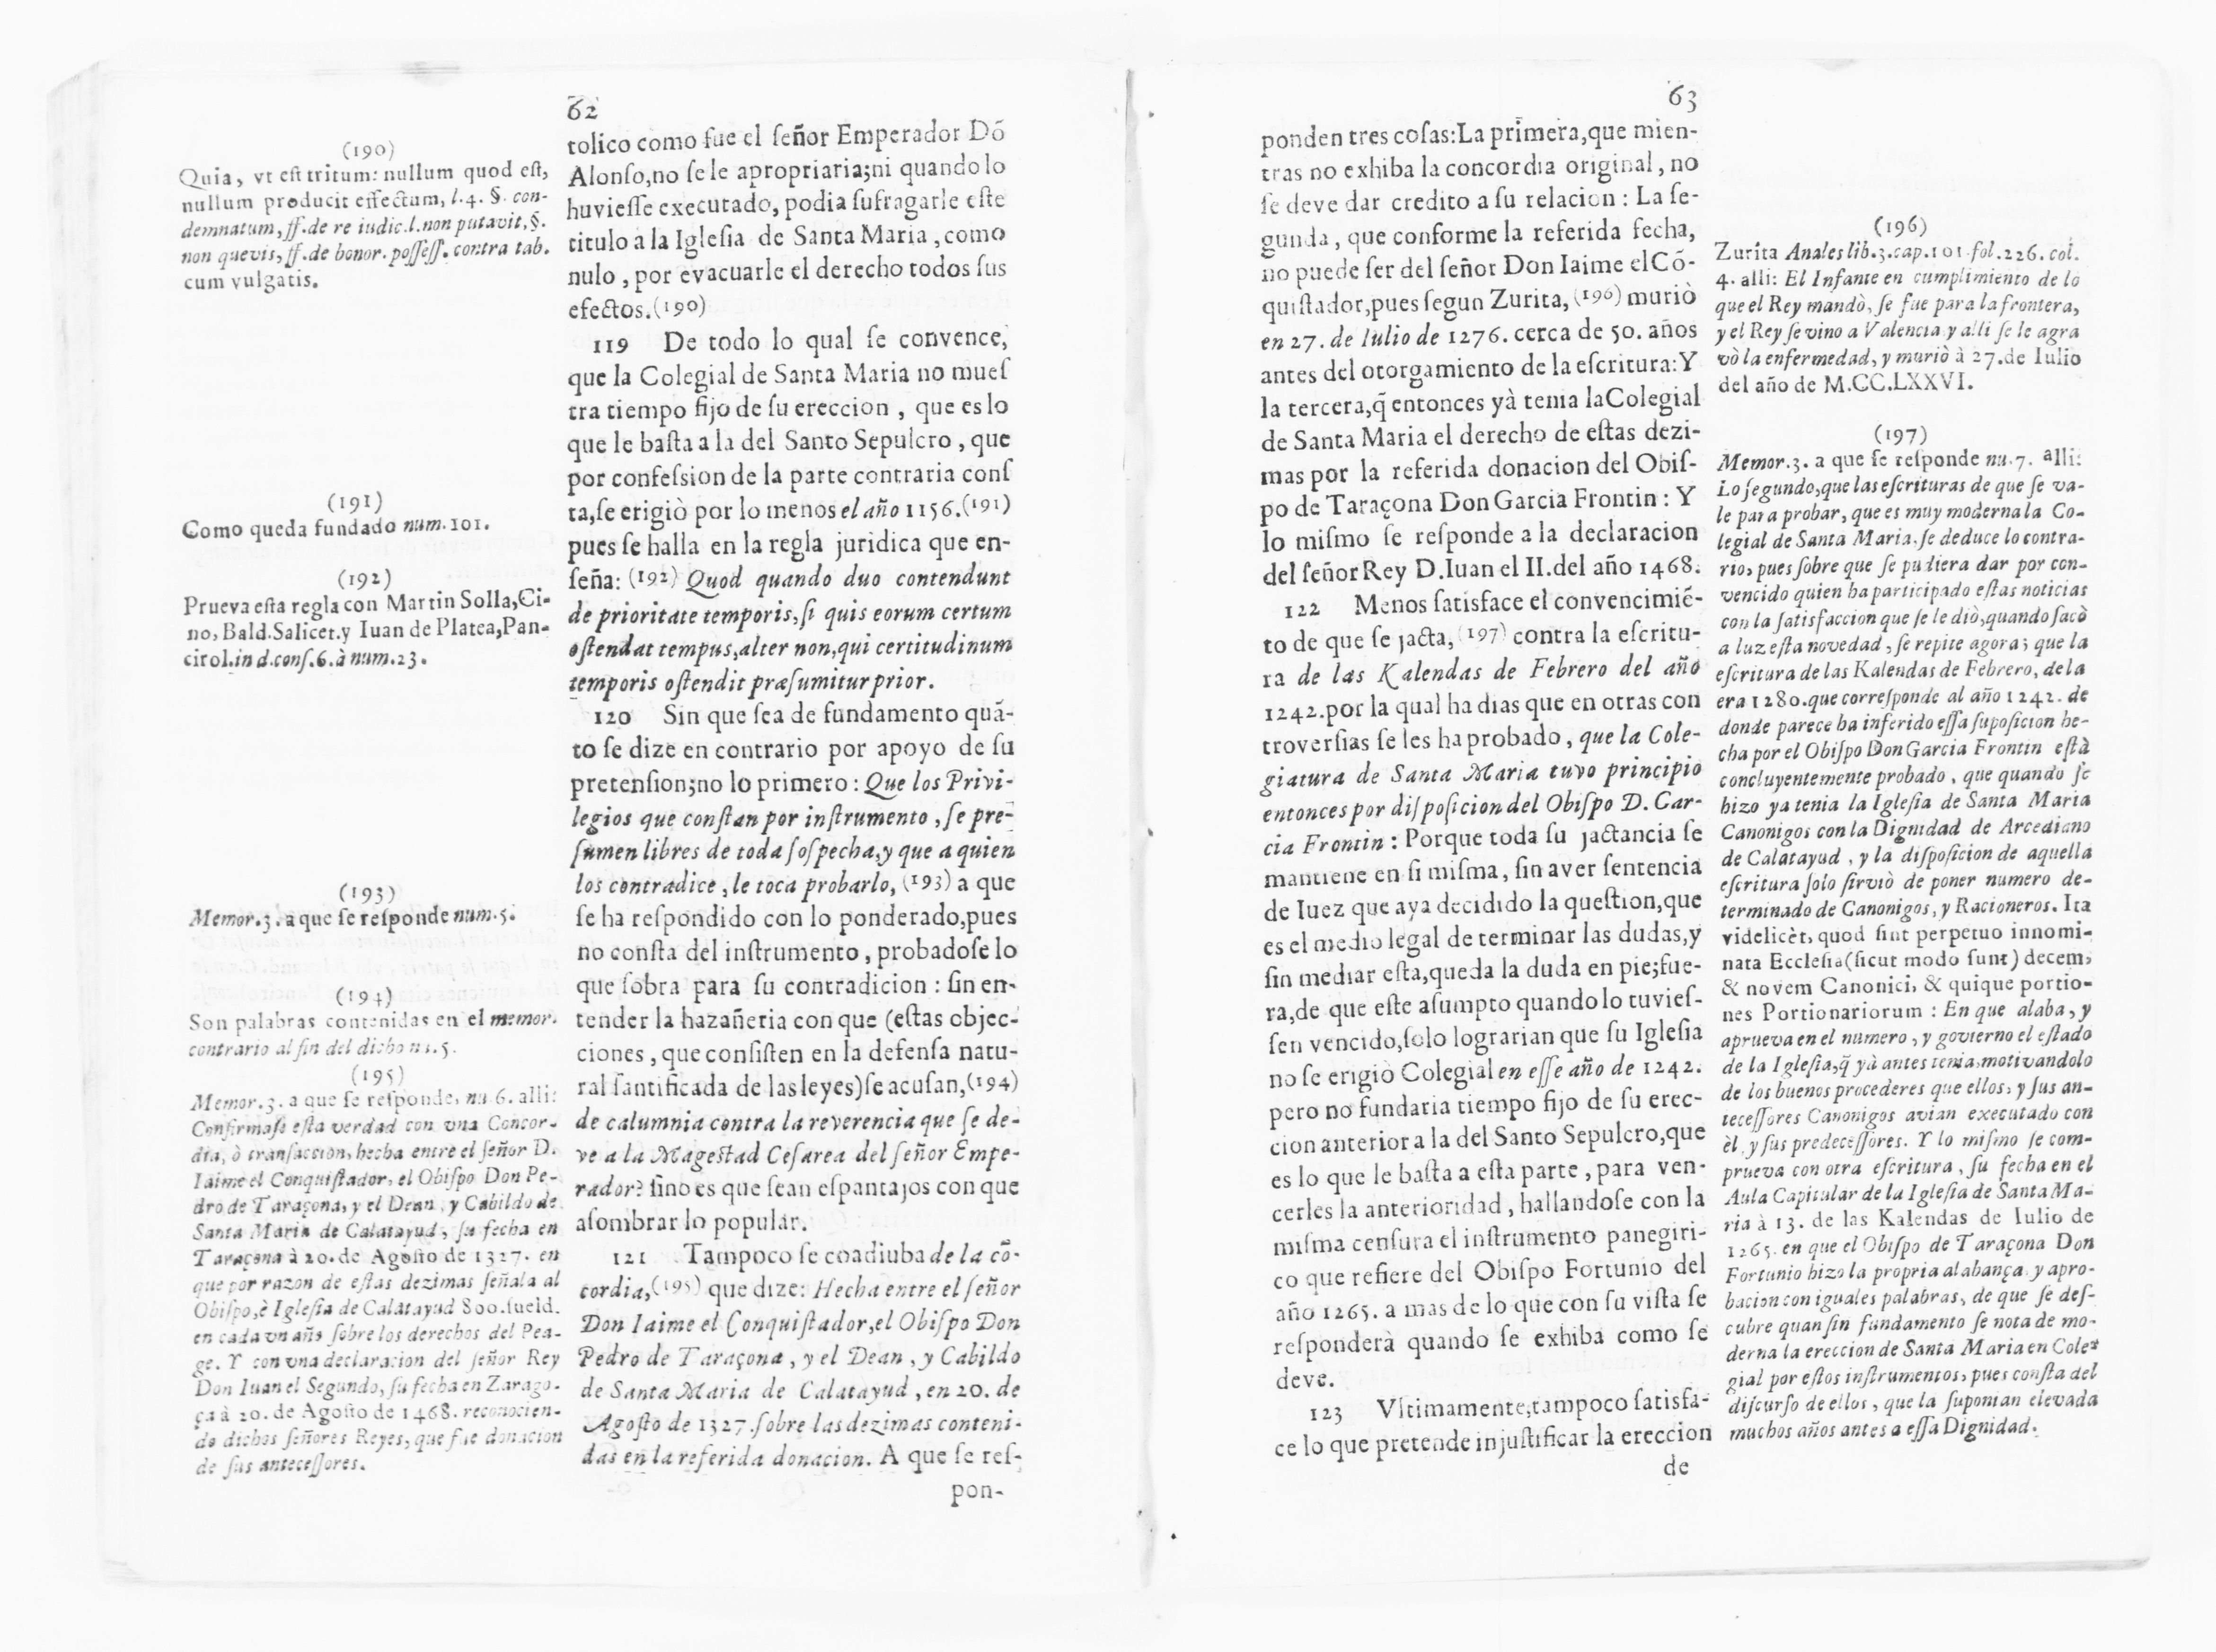 62
tolico como fue el ſeñor Emperador Dõ
Alonſo,no ſele apropriaria;ni quando lo
huvieſſe executado, podia ſufragarle eſte
titulo a la Igleſia de Santa Maria , como
nulo , por evacuarle el derecho todos ſus
efectos.(190)
119 De todo lo qual ſe convence,
que la Colegial de Santa Maria no mueſ
tra tiempo fijo de ſu ereccion , que es lo
que le baſta a la del Santo Sepulcro , que
por confeſsion de la parte contraria conſ
ta,ſe erigiò por lo menos el año 1156.(191)
pues ſe halla en la regla juridica que en-
ſeña: (192) Quod quando duo contendunt
de prioritate temporis,ſi quis eorum certum
oſtendat tempus,alter non,qui certitudinum
temporis oſtendit præſumitur prior.
120 Sin que ſea de fundamento quã-
to ſe dize en contrario por apoyo de ſu
pretenſion;no lo primero : Que los Privi-
legios que conſtan por inſtrumento , ſe pre-
ſumen libres de toda ſoſpecha,y que a quien
los contradice , le toca probarlo, (193) a que
ſe ha reſpondido con lo ponderado,pues
no conſta del inſtrumento , probadoſe lo
que ſobra para ſu contradicion : ſin en-
tender la hazañeria con que (eſtas objec-
ciones , que conſiſten en la defenſa natu-
ral ſantificada de las leyes)ſe acuſan,(194)
de calumnia contra la reverencia que ſe de-
ve a la Mageſtad Ceſarea del ſeñor Empe-
rador? ſino es que ſean eſpantajos con que
aſombrar lo popular.
121 Tampoco ſe coadiuba de la cõ-
cordia,(195) que dize: Hecha entre el ſeñor
Don Iaime el Conquiſtador,el Obiſpo Don
Pedro de Taraçona , y el Dean , y Cabildo
de Santa Maria de Calatayud , en 20. de
Agoſto de 1327.ſobre las dezimas conteni-
das en la referida donacion. A que ſe reſ-
pon-
(190)
Quia, vt eſt tritum: nullum quod eſt,
nullum producit effectum, l.4. §. con-
demnatum, ff.de re iudic.l.non putavit,§.
non quevis, ff.de bonor.poſſeſſ. contra tab.
cum vulgatis.
(191)
Como queda fundado num.101.
(192)
Prueva eſta regla con Martin Solla,Ci-
no, Bald.Salicet.y Iuan de Platea,Pan-
cirol.in d.conſ.6.à num.23.
(193)
Memor.3. a que ſe reſponde num.5.
(194)
Son palabras contenidas en el memor.
contrario al fin del dicho nu.5.
(195)
Memor.3. a que ſe reſponde, nu.6. alli:
Confirmaſe eſta verdad con vna Concor-
dia, ò tranſaccion, hecha entre el ſeñor D.
Iaime el Conquiſtador, el Obiſpo Don Pe-
dro de Taraçona, y el Dean , y Cabildo de
Santa Maria de Calatayud , ſu fecha en
Taraçona à 20.de Agoſto de 1327. en
que por razon de eſtas dezimas ſeñala al
Obiſpo,è Igleſia de Calatayud 800.ſueld.
en cada vn año ſobre los derechos del Pea-
ge. Y con vna declaracion del ſeñor Rey
Don Iuan el Segundo, ſu fecha en Zarago-
ça à 20. de Agoſto de 1468. reconocien-
do dichos ſeñores Reyes, que fue donacion
de ſus anteceſſores.
63
ponden tres coſas:La primera,que mien-
tras no exhiba la concordia original , no
ſe deve dar credito a ſu relacion : La ſe-
gunda , que conforme la referida fecha,
no puede ſer del ſeñor Don Iaime el Cõ-
quiſtador,pues ſegun Zurita, (196) muriò
en 27. de Iulio de 1276. cerca de 50. años
antes del otorgamiento de la eſcritura:Y
la tercera,q̃ entonces yà tenia la Colegial
de Santa Maria el derecho de eſtas dezi-
mas por la referida donacion del Obiſ-
po de Taraçona Don Garcia Frontin : Y
lo miſmo ſe reſponde a la declaracion
del ſeñor Rey D.Iuan el II.del año 1468.
122 Menos ſatisface el convencimiẽ-
to de que ſe jacta, (197) contra la eſcritu-
ra de las Kalendas de Febrero del año
1242.por la qual ha dias que en otras con
troverſias ſe les ha probado , que la Cole-
giatura de Santa Maria tuvo principio
entonces por diſpoſicion del Obiſpo D. Gar-
cia Frontin : Porque toda ſu jactancia ſe
mantiene en ſi miſma, ſin aver ſentencia
de Iuez que aya decidido la queſtion,que
es el medio legal de terminar las dudas,y
ſin mediar eſta,queda la duda en pie;fue-
ra,de que eſte aſumpto quando lo tuvieſ-
ſen vencido,ſolo lograrian que ſu Igleſia
no ſe erigiò Colegial en eſſe año de 1242.
pero no fundaria tiempo fijo de ſu erec-
cion anterior a la del Santo Sepulcro,que
es lo que le baſta a eſta parte , para ven-
cerles la anterioridad , hallandoſe con la
miſma cenſura el inſtrumento panegiri-
co que refiere del Obiſpo Fortunio del
año 1265. a mas de lo que con ſu viſta ſe
reſponderà quando ſe exhiba como ſe
deve.
123 Vltimamente,tampoco ſatisfa-
ce lo que pretende in juſtificar la ereccion
de
(196)
Zurita Anales lib.3.cap.101.fol.226.col.
4. alli: El Infante en cumplimiento de lo
que el Rey mandò, ſe fue para la frontera,
y el Rey ſe vino a Valencia y alli ſe le agra
vò la enfermedad, y muriò à 27.de Iulio
del año de M.CC.LXXVI.
(197)
Memor.3. a que ſe reſponde nu.7. alli:
Lo ſegundo,que las eſcrituras de que ſe va-
le para probar, que es muy moderna la Co-
legial de Santa Maria, ſe deduce lo contra-
rio, pues ſobre que ſe pudiera dar por con-
vencido quien ha participado eſtas noticias
con la ſatisfaccion que ſe le diò,quando ſacò
a luz eſta novedad , ſe repite agora; que la
eſcritura de las Kalendas de Febrero, de la
era 1280.que correſponde al año 1242. de
donde parece ha inferido eſſa ſupoſicion he-
cha por el Obiſpo Don Garcia Frontin eſtà
concluyentemente probado , que quando ſe
hizo ya tenia la Igleſia de Santa Maria
Canonigos con la Dignidad de Arcediano
de Calatayud , y la diſpoſicion de aquella
eſcritura ſolo ſirviò de poner numero de-
terminado de Canonigos, y Racioneros. Ita
videlicèt, quod ſint perpetuo innomi-
nata Eccleſia(ſicut modo ſunt) decem,
& novem Canonici, & quique portio-
nes Portionariorum : En que alaba, y
aprueva en el numero , y govierno el eſtado
de la Igleſia,q̃ yà antes tenia,motivandolo
de los buenos procederes que ellos, y ſus an-
teceſſores Canonigos avian executado con
èl, y ſus predeceſſores. Y lo miſmo ſe com-
prueva con otra eſcritura , ſu fecha en el
Aula Capitular de la Igleſia de Santa Ma-
ria à 13. de las Kalendas de Iulio de
1265. en que el Obiſpo de Taraçona Don
Fortunio hizo la propria alabança y apro-
bacion con iguales palabras, de que ſe deſ-
cubre quan ſin fundamento ſe nota de mo-
derna la ereccion de Santa Maria en Cole-
gial por eſtos inſtrumentos, pues conſta del
diſcurſo de ellos , que la ſuponian elevada
muchos años antes a eſſa Dignidad.